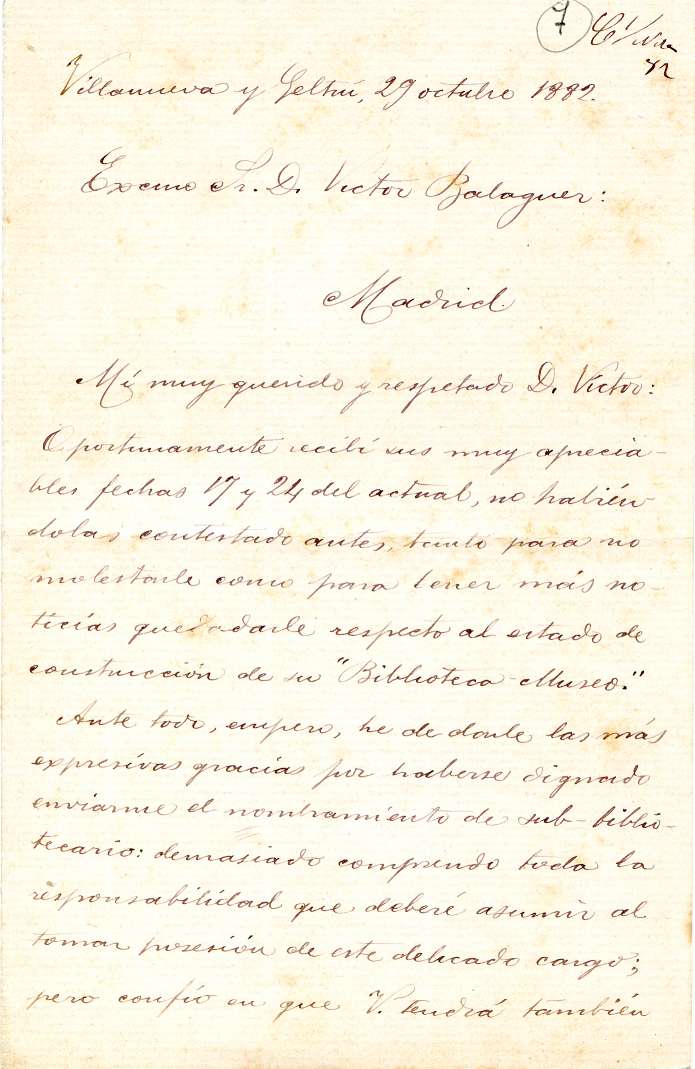 7
Villanueva y Geltrú, 29 octubre 1882.
Excmo Sr. D. Victor Balaguer:
Madrid.
Mi muy querido y respetado D. Victor:
Oportunamente recibí sus muy aprecia-
bles fechas 17 y 24 del actual, no habién-
dolas contestado antes, tanto para no
molestarle como para tener más no-
ticías que darle respecto al estado de
construcción de su "Biblioteca-Museo."
Ante todo, empero, he de darle las más
expresivas gracias por haberse dignado
enviarme el nombramiento de sub-biblio-
tecario: demasiado comprendo toda la
responsabilidad que deberé asumir al
tomar posesión de este delicado cargo;
pero confío en que V. tendrá también